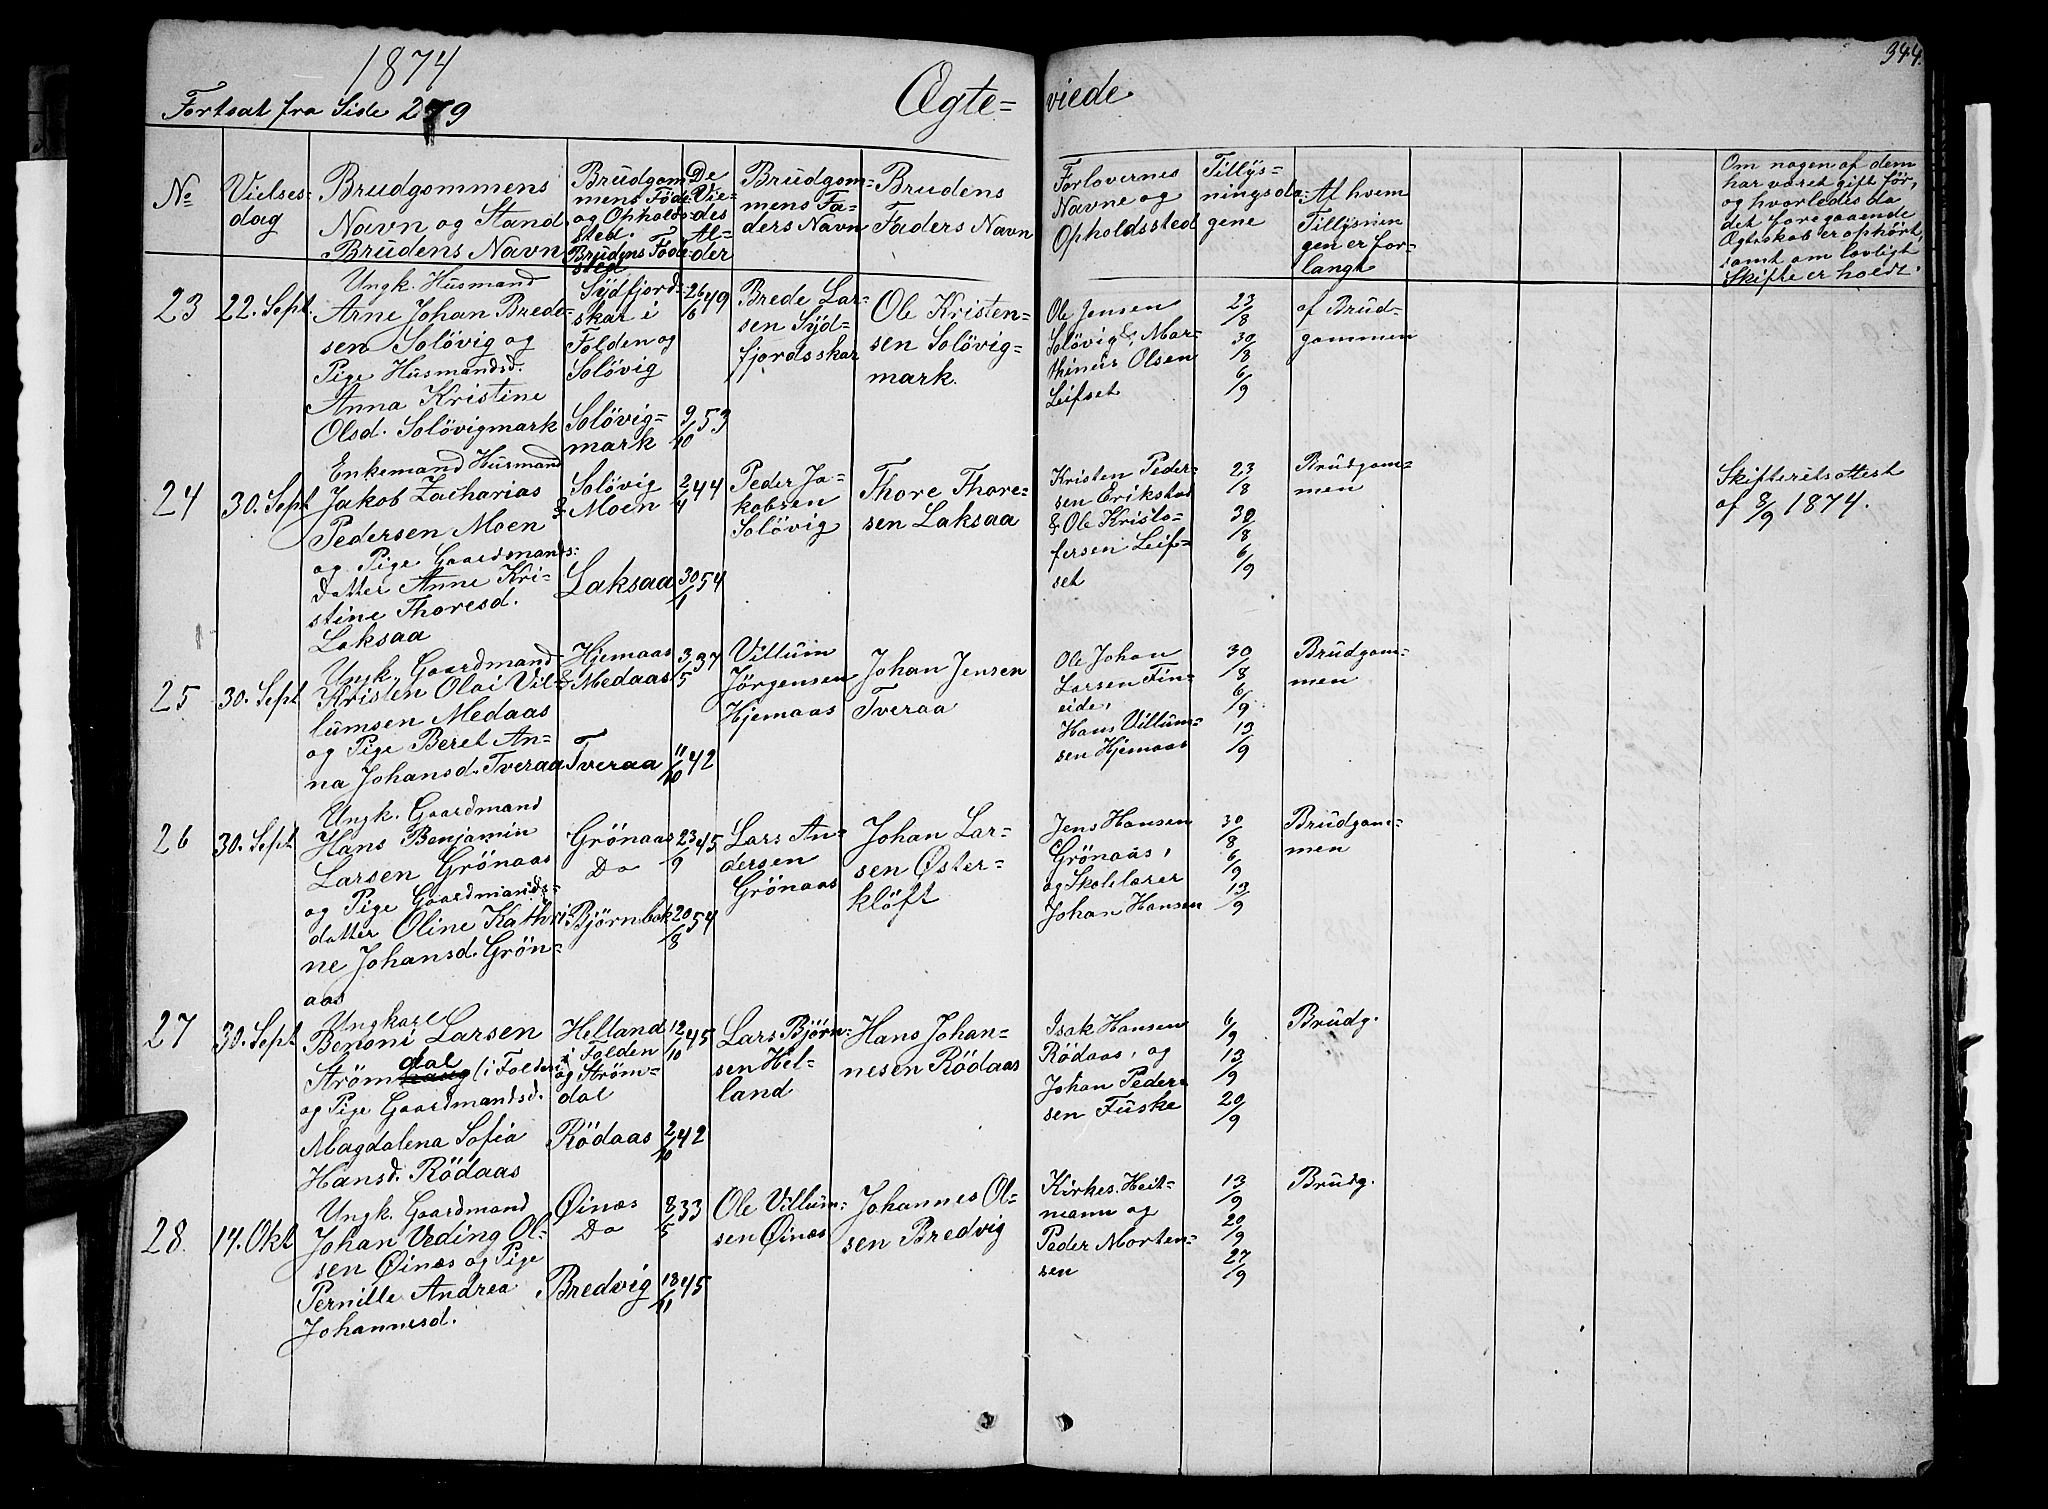 1874
Fortsat fra Side 279
Ægte= viede
344.
No
Vielses-
dag
Brudgommens
Navn og Stand.
Brudens Navn
Brudgom-
mens Føde
og Opholds-
sted.
Brudens Føde-
sted
De
Vie-
des
Al-
der
Brudgom-
mens Fa-
ders Navn
Brudens
Faders Navn
Forlovernes
Navne og
Opholdssted
Tillys-
ningsda-
gene
Af hvem
Tillysnin
gen er for-
langt
Om nogen af dem
har været gift før,
og hvorledes da
det foregaaende
Ægteskab er ophørt,
samt om lovligt
Skifte er holdt.
23
22. Sept.
Ungk. Husmand
Arne Johan Brede-
sen Solövig og
Pige Husmandsd.
Anna Kristine
Olsd. Solövigmark
Sydfjord-
skar i
Folden og
Solövig
Solövig=
mark
26/6 49
9/10 53
Brede Lar-
sen Syd-
fjordsskar
Ole Kristen-
sen Solövig-
mark.
Ole Jensen
Solövig & Mar-
thinus Olsen
Leifset
23/8
30/8
6/9
af Brud-
gommen
24
30. Sept
Enkemand Husmand
Jakob Zacharias
Pedersen Moen
og Pige Gaardmands:
datter Anne Kri-
stine Thoresd.
Laksaa
Solövig
& Moen
Laksaa
2/4 44
30/1 54
Peder Ja-
kobsen
Solövig
Thore Thore-
sen Laksaa
Kristen Peder-
sen Erikstad
& Ole Kristo-
fersen Leif-
set
23/8
30/8
6/9
Brudgom=
men
Skifteretsattest
af 8/9 1874.
25
30. Sept
Ungk. Gaardmand
Kristen Olai Vil-
lumsen Medaas
og Pige Beret An-
na Johansd. Tveraa
Hjemaas
& Medaas
Tveraa
3/5 37
11/10 42
Villum
Jörgensen
Hjemaas
Johan Jensen
Tveraa
Ole Johan
Larsen Fin-
eide,
Hans Villum-
sen Hjemaas
30/8
6/9
13/9
Brudgom-
men
26
30. Sept
Ungk. Gaardmand
Hans Benjamin
Larsen Grönaas
og Pige Gaardmands-
datter Oline Kathri
ne Johansd. Grön-
aas
Grönaas
Do
Bjørnbak
23/9 45
20/8 54
Lars An-
dersen
Grönaas
Johan Lar-
sen Øster-
klöft
Jens Hansen
Grönaas,
og Skolelærer
Johan Hansen
30/8
6/9
13/9
Brudgom-
men
27
30. Sept
Ungkarl
Benoni Larsen
dal
Ström (i Folden
og Pige Gaardmandsd.
Magdalena Sofia
Hansd. Rödaas
Helland
i Folden
og Ström-
dal
Rödaas
12/10 45
2/10 42
Lars Bjørn-
sen Hel-
land
Hans Johan-
nesen Rödaas
Isak Hansen
Rödaas, og
Johan Peder-
sen Fuske
6/9
13/9
20/9
Brudg.
28.
14. Okt
Ungk. Gaardmand
Johan Veding Ol-
sen Øinæs og Pige
Pernille Andrea
Johannesd.
Øinæs
Do
Bredvig
8/5 33
18/11 45
Ole Villum-
sen Øinæs
Johannes Ol-
sen Bredvig
Kirkes. Heit-
mann og
Peder Morten-
sen
13/9
20/9
27/9
Brudg.